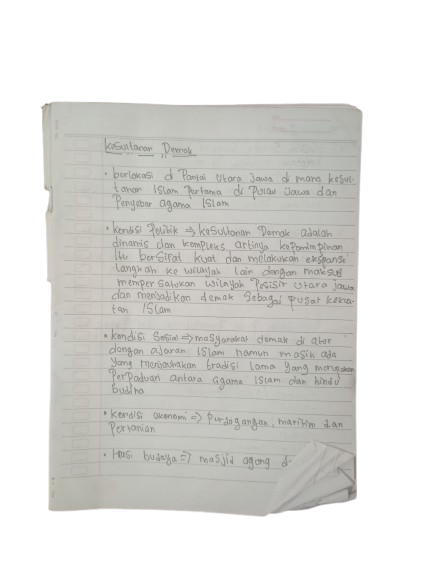 Kesultanan Demak
• berlokasi di Pantai Utara Jawa di mana kesul-
tanan Islam Pertama di Pulau Jawa dan
Penyebar agama Islam
• kondisi Politik => kesultanan Demak adalah
dinamis dan kompleks, artinya kepemimpinan
itu bersifat kuat dan melakukan ekspansi
langkah ke wilayah lain dengan maksud
mempersatukan wilayah Pesisir Utara Jawa
dan menjadikan demak sebagai pusat kekua-
tan Islam
• kondisi Sosial => masyarakat demak di atur
dengan ajaran Islam namun masih ada
yang menjalankan tradisi lama yang merupakan
Perpaduan antara agama Islam dan hindu
budha
• kondisi ekonomi => Perdagangan, maritim dan
Pertanian
• Hasi budaya => masjid agung d